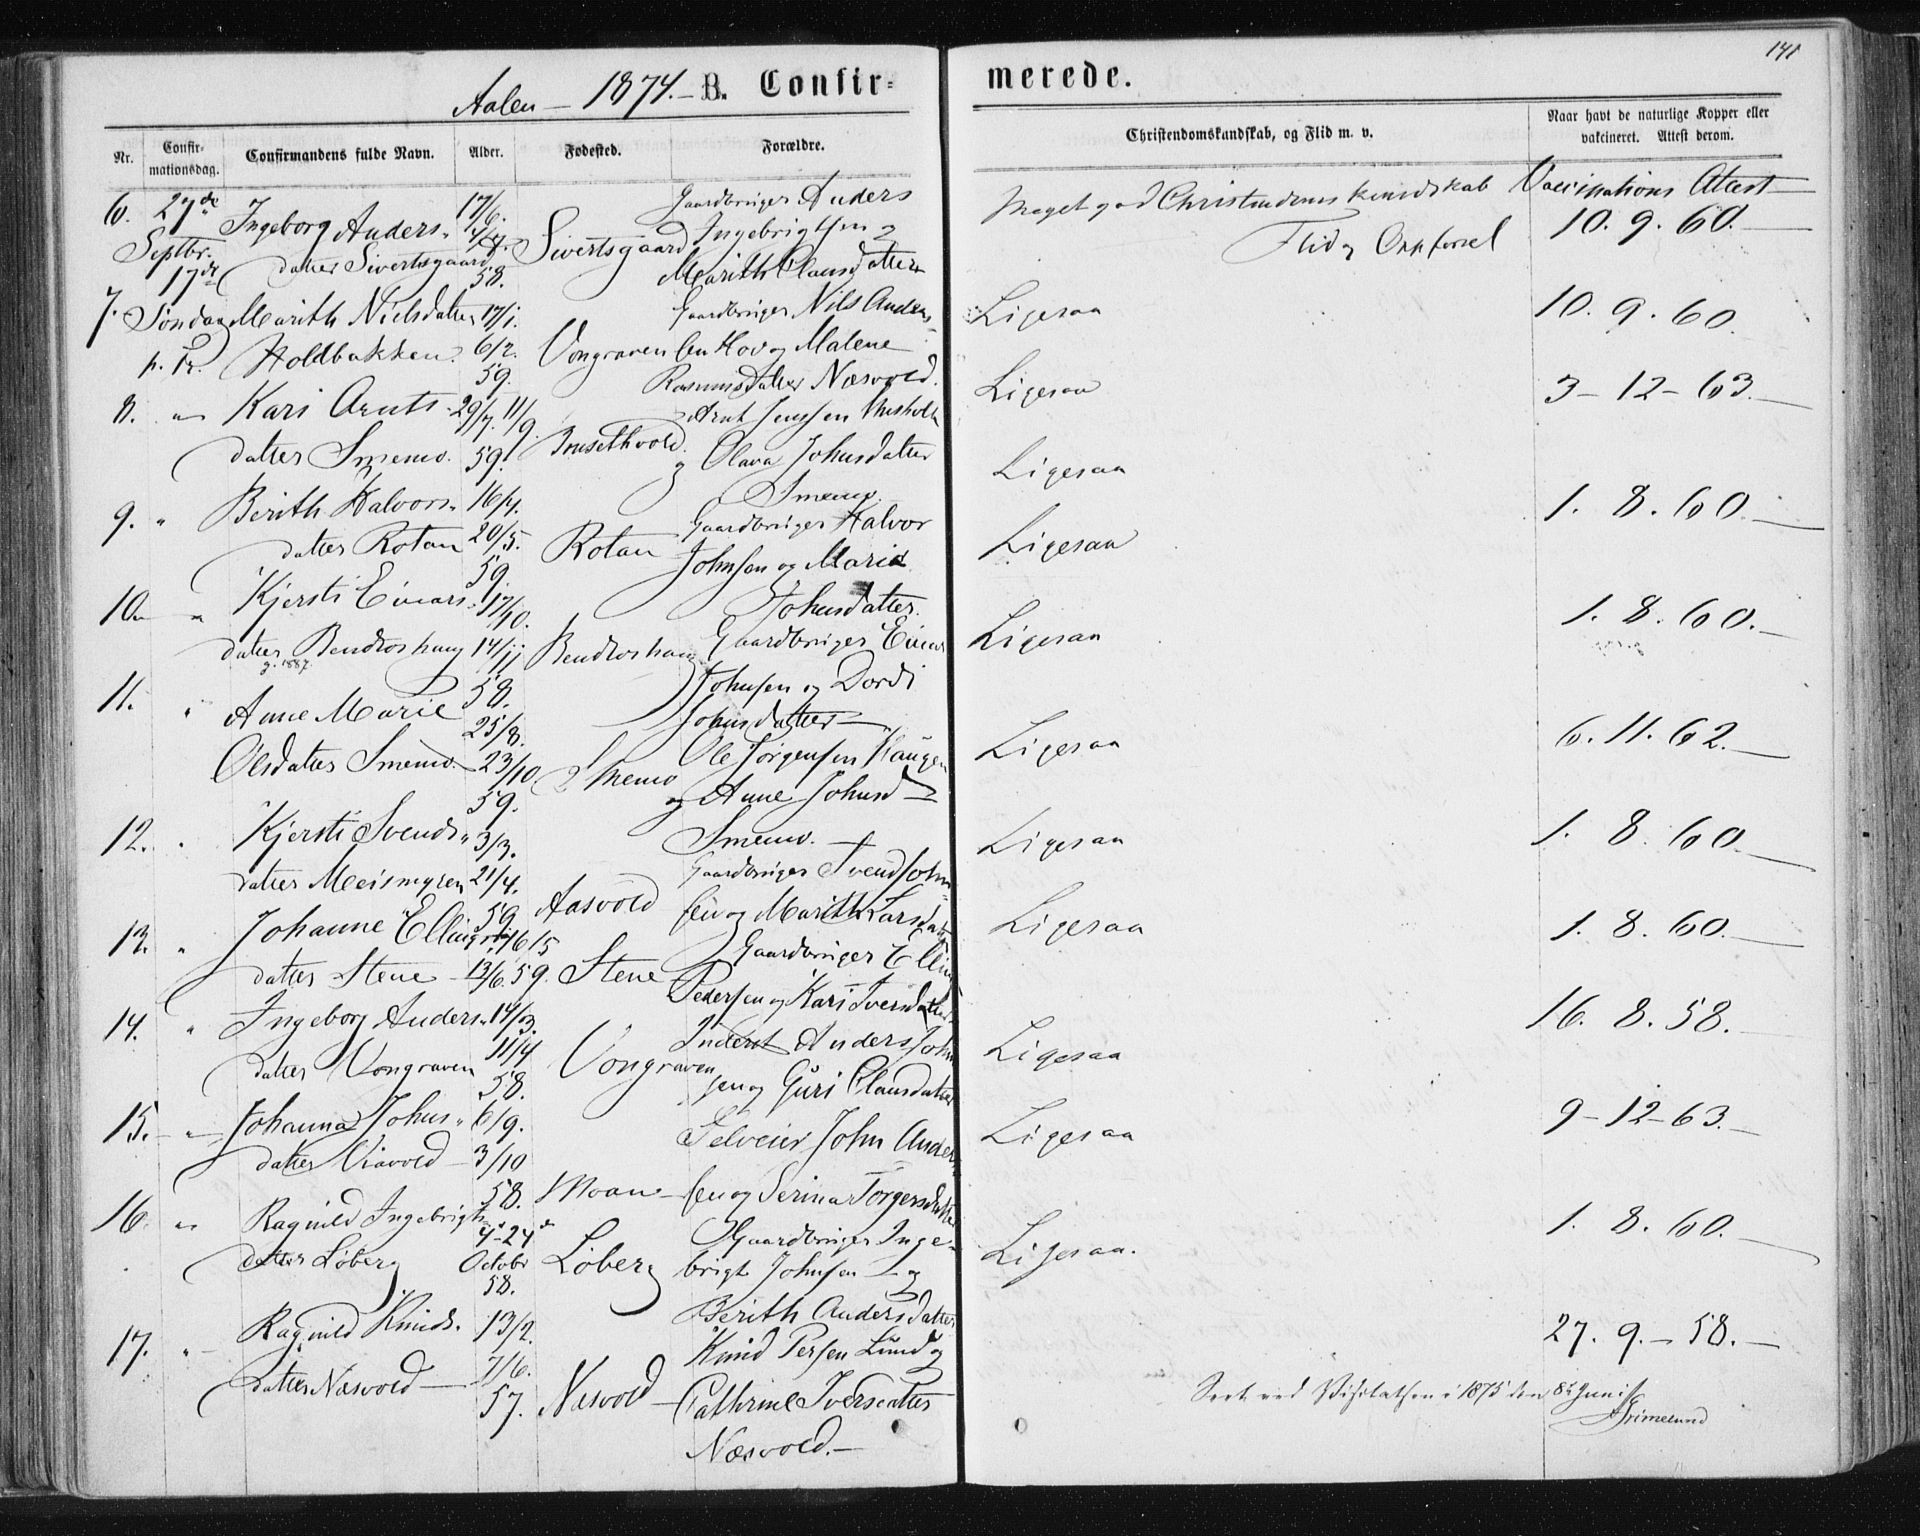 141
Aalen – 1874. – B. Confir-
merede.
Nr.
Confir-
mationsdag.
Confirmandens fulde Navn.
Alder.
Fødested.
Forældre.
Christendomskundskab, og Flid m. v.
Naar havt de naturlige Kopper eller
vakcineret. Attest derom.
6. 27de Ingeborg Anders- 17/6. Gaardbruger Anders
Septbr. datter Sivertsgaard Sivertsgaard Ingebrigtsen
17de 58. Marith Clausdatter
Meget god Christendomskundskab Vaccinations Attest
Flid og Opførsel 10. 9. 60.
7. Søndag Marith Nielsdatter 17/1. Gaardbruger Nils Anders-
p. Tr. Holdbakken. 6/2. Vongraven sen Hov og Malene
59. Rasmusdatter Næsvold.
Ligesaa 10. 9. 60.
8. " Kari Arnts- 29/7. 11/9. Arnt Jenssen
datter Smemo. 59. Brusethvold. og Olava Johnsdatter
Smemo.
Ligesaa 3-12-63.
9. " Berith Halvors- 16/4. Gaardbruger Halvor
datter Rotan 20/5. Rotan Johnsen og Maria
59. Johnsdatter.
Ligesaa 1. 8. 60.
Ligesaa
10. " Kjersti Einars- 17/10. Gaardbruger Einar
datter Bendroshaug 14/11 Bendroshaug Johnsen og Dordi
g. 1887.
58. Johnsdatter
Ligesaa 1. 8. 60.
11. " Anne Marie 25/8. Ole Jørgensen Haugen
Olsdatter Smemo. 23/10 Smemo og Anne Johnsd
59. Smemo.
Ligesaa 6. 11. 62.
12. " Kjersti Svends- 3/3. Gaardbruger Svend John-
datter Meismyren 21/4. Aasvold sen og Marith Larsdatter
59
Ligesaa 1. 8. 60.
13. " Johanne Ellings- Gaardbruger Elling
datter Stene 13/6. 59. Stene Pedersen og Kari Iversdatter
Ligesaa 1. 8. 60.
14. " Ingeborg Anders- 14/3. Inderst Anders John
datter Vongraven 11/4 Vongraven sen og Guri Clausdatter
58.
Ligesaa 16. 8. 58.
15. " Johanna Johns- 6/9. Selveier John Anders
datter Viavold 3/10 Moan sen og Serina Torgersdatter
58.
Ligesaa 9-12-63.
16. " Ragnild Ingebrigts 4-24de Gaardbruger Inge-
datter Løberg Octobr Løberg brigt Johnsen og
58. Berith Andersdatter
Ligesaa. 1. 8. 60.
17. " Ragnild Knuds- 13/2. Knud Persen Lund og
datter Næsvold 7/6. Næsvold Cathrine Iversdatter
57. Næsvold.
27. 9. – 58.
Seet ved Visitatsen i 1875 den 8de Juni
Grimelund